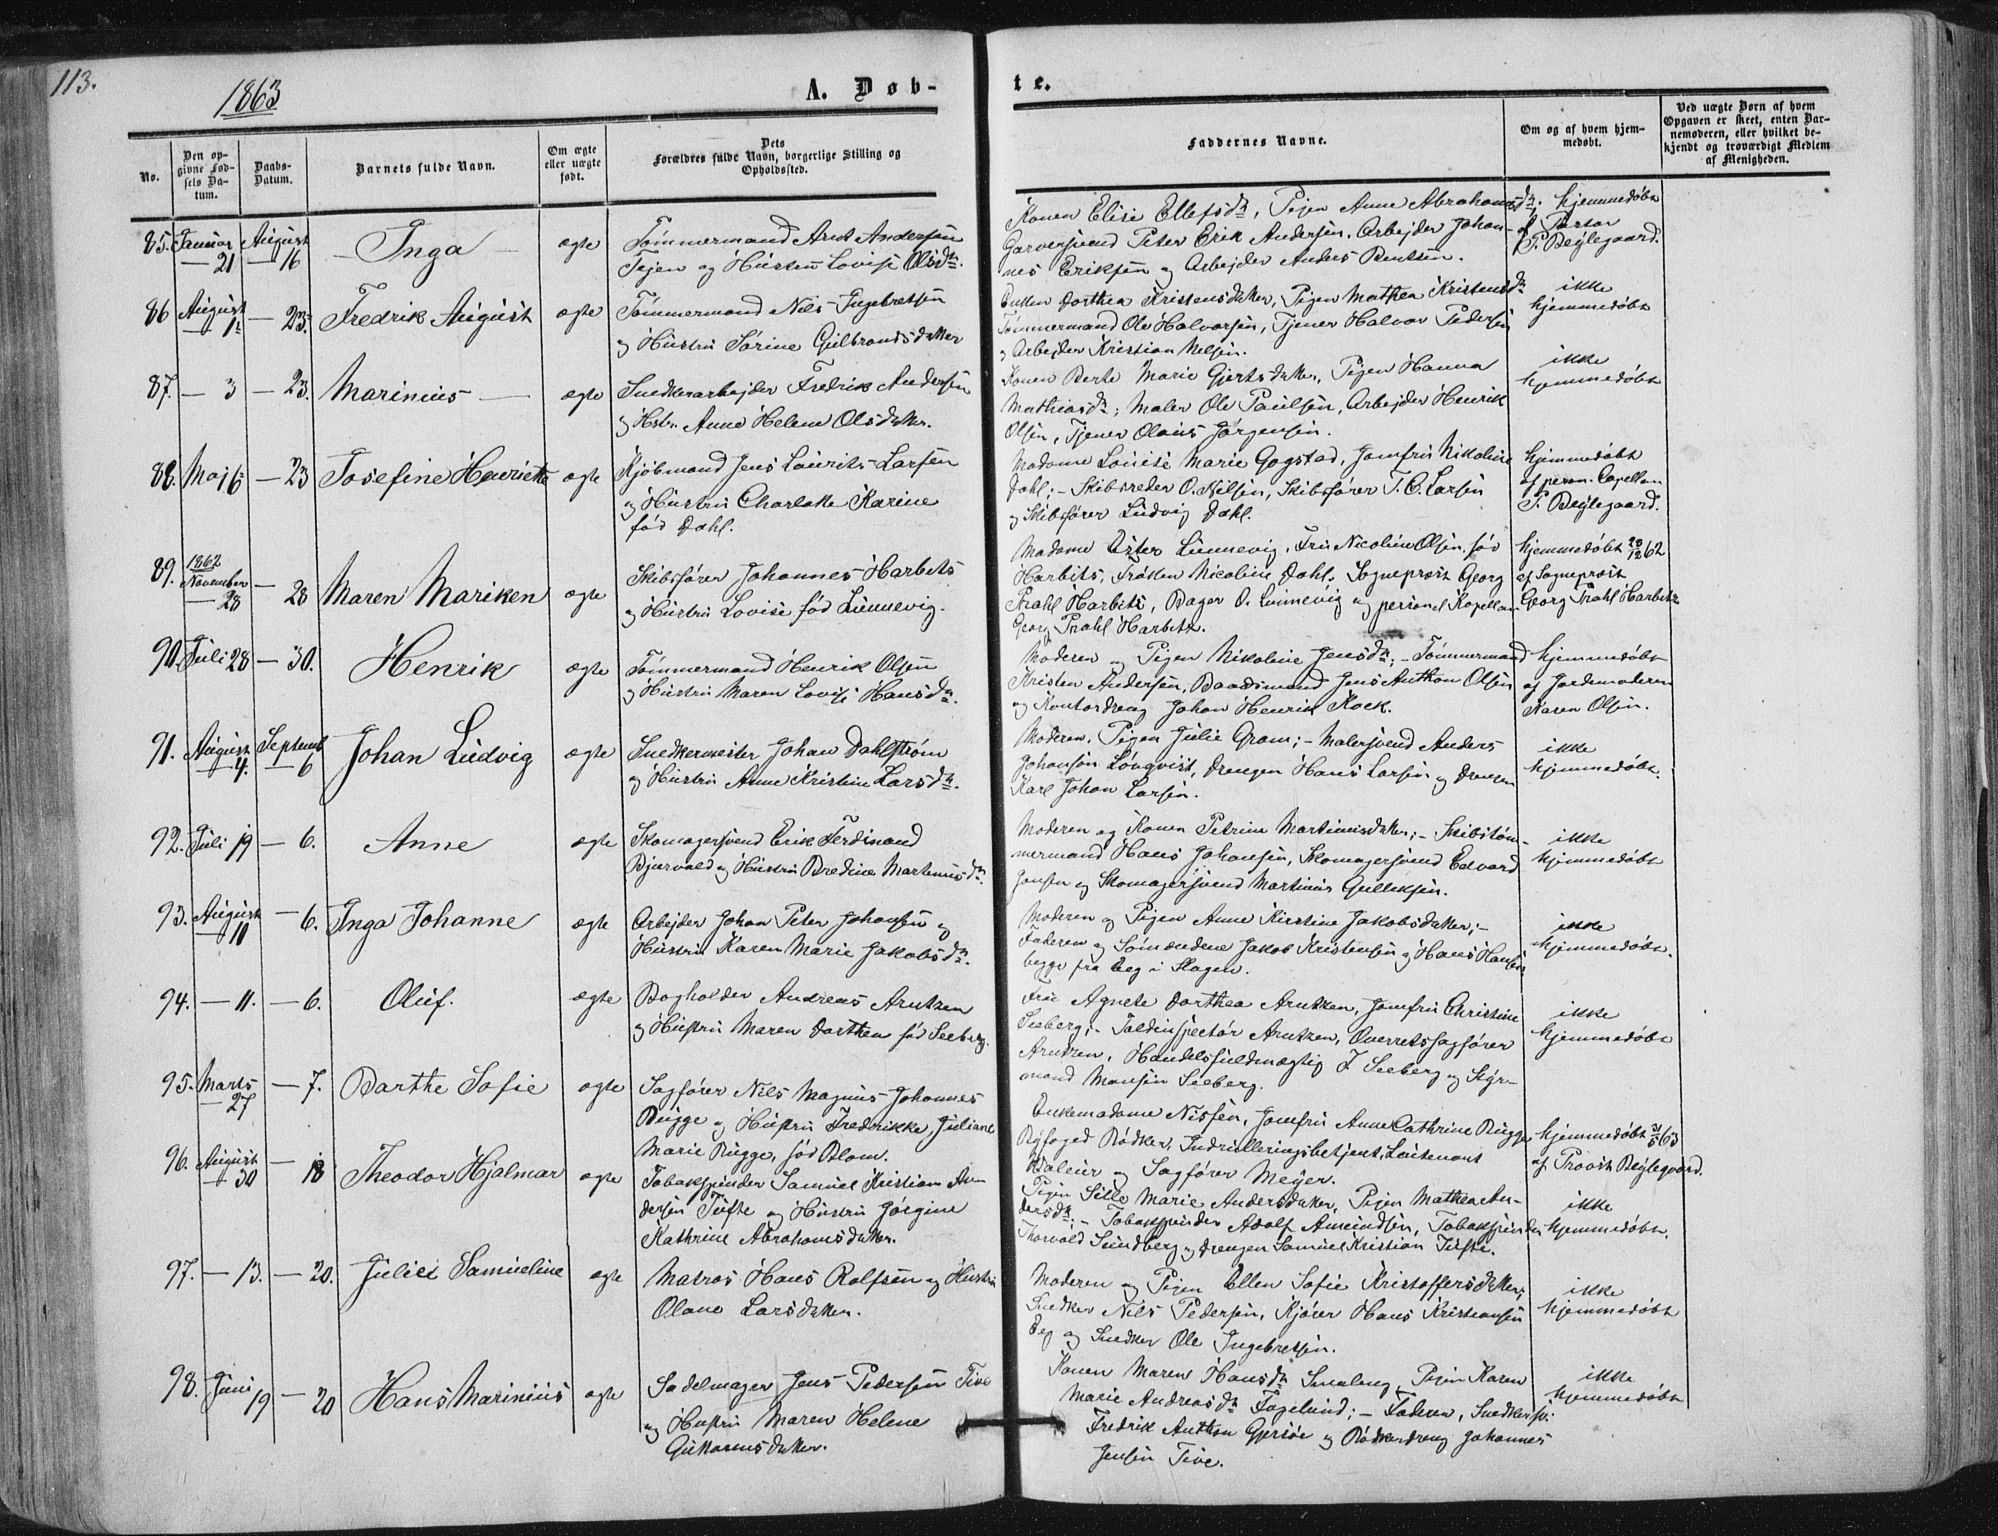 113.
1863
A. Døb-
te.
No.
Den op-
givne Fød-
sels Da-
tum.
Daabs-
Datum.
Barnets fulde Navn.
Om ægte
eller uægte
født.
Dets
Forældres fulde Navn, borgerlige Stilling og
Opholdssted.
Faddernes Navne.
Om og af hvem hjem-
medøbt.
Ved uægte Børn af hvem
Opgaven er skeet, enten Bar-
nemoderen, eller hvilket be-
kjendt og troværdigt Medlem
af Menigheden.
85. Januar 21 August 16 Inga ægte
Tømmermand Arnt Andersen
Tejen og Hustru Lovise Olsdtr.
Konen Elise Ellefsdtr, Pigen Anne Abrahamsdtr;
Garversvend Peter Erik Andersen, Arbejder Johan-
nes Eriksen og Arbejder Anders Bentsen.
hjemmedøbt
af Pastor
P. Bejlegaard.
86 August 12 — 23. Fredrik August ægte
Tømmermand Nils Ingebretsen
og Hustru Sørine Gulbrandsdatter
Enken Dorthea Kristensdatter, Pigen Mathea Kristensdtr
Tømmermand Ole Halvorsen, Tjener Halvor Pedersen
og Arbejder Kristian Nelsen.
ikke
hjemmedøbt
87. — 3 — 23. Marinius — ægte
Snedkerarbejder Fredrik Andersen
og Hstr. Anne Helene Olsdatter.
Konen Berte Marie Gjertsdatter, Pigen Hanna
Mathiasdtr; Maler Ole Paulsen, Arbejder Henrik
Olsen, Tjener Olaus Jørgensen.
ikke
hjemmedøbt
88. Maj 6 — 23 Josefine Henriette ægte
Kjøbmand Jens Laurits Larsen
og Hustru Charlotte Karine
fød Dahl.
Madame Louise Marie Gogstad, Jomfru Nikoline
Dahl; — Skibsreder O. Nilsen, Skibsfører T. C. Larsen
og Skibsfører Ludvig Dahl.
hjemmedøbt
af person. Capellan
P. Bejlegaard.
89. 1862 November 28 — 28 Maren Mariken ægte
Skibsfører Johannes Harbits
og Hustru Lovise fød Linnevig.
Madame Linnevig, Fru Nicoline Olsen fød
Harbits, Frøken Nicoline Dahl, Sogneprest Georg
Prahl Harbits, Bager O. Linnevig og personel Kapellan
Georg Prahl Harbitz.
hjemmedøbt 28/12 62
af Sogneprest
Georg Prahl Harbitz
90. Juli 28 — 30. Henrik ægte
Tømmermand Henrik Olsen
og Hustru Maren Lovise Hansdtr.
Moderen og Pigen Nikoline Jensdtr; — Tømmermand
Kristen Andersen, Baadsmand Jens Anthon Olsen
og Kontordreng Johan Henrik Kock.
hjemmedøbt
af Jordemoderen
Karen Olsen.
91. August 4. Septemb 6 Johan Ludvig ægte
Snedkermester Johan Dahlstrøm
og Hustru Anne Kristine Larsdtr.
Moderen, Pigen Julie Gram; — Malersvend Anders
Johansen Løvqvist, Drengen Hans Larsen og Drengen
Karl Johan Larsen.
ikke
hjemmedøbt.
92. Juli 19 — 6. Anne ægte
Skomagersvend Erik Ferdinand
Bjurvald og Hustru Bredine Martinusdtr.
Moderen og Konen Petrine Martinusdatter; — Skibstøm-
mermand Hans Johansen, Skomagersvend Edvard
Jansen og Skomagersvend Martinus Gulliksen.
ikke
hjemmedøbt
93. August 10 — 6. Inga Johanne ægte
Arbejder Johan Peter Johansen og
Hustru Karen Marie Jakobsdtr.
Moderen og Pigen Anne Kirstine Jakobsdatter; —
Faderen og Sømændene Jakob Kristensen og Hans Hansen
begge fra Eeg i Slagen.
ikke
hjemmedøbt.
94. — 11. — 6. Oluf. ægte
Bogholder Andreas Arntzen
og Hustru Maren Dorthea fød Seeberg.
Fru Agnete Dorthea Arntzen, Jomfru Christine
Seeberg; — Toldinspectør Arntzen, Overretssagfører
Arntzen, Handelsfuldmægtig J. Seeberg og Styr-
mand Mansen Seeberg.
ikke
hjemmedøbt
95. Marts 27 — 7. Barthe Sofie ægte
Sagfører Nils Magnus Johannes
Bugge og Hustru Fredrikke Juliane
Marie Bugge, fød Blom.
Enkemadame Nissen, Jomfru Anne Cathrine Bugge
Byfoged Rødker, Indrulleringsbetjent, Løitenant
og Sagfører Meyer.
hjemmedøbt 31/5 63
af Provst Bejlegaard.
96. August 30 — 13 Theodor Hjalmar ægte
Tobakspinder Samuel Kristian An-
dersen Tufte og Hustru Jørgine
Kathrine Abrahamsdatter.
Pigen Sille Marie Andersdatter, Pigen Mathea An-
dersdtr; — Tobakspinder Adolf Amundsen, Tobakspinder
Thorvald Sundberg og Drengen Samuel Kristian Tufte.
ikke
hjemmedøbt.
97. — 13. — 20. Julie Samueline ægte
Matros Hans Rolfsen og Hustru
Olave Larsdatter.
Moderen og Pigen Ellen Sofie Kristoffersdatter;
Snedker Nils Pedersen, Kjører Hans Kristiansen
Eeg og Snedker Ole Ingebretsen.
ikke
hjemmedøbt
98. Juni 19 — 20 Hans Marinius ægte
Sadelmager Jens Pedersen Tive
og Hustru Maren Helene
Guttormsdatter.
Konen Maren Hansdtr Smaleng, Pigen Karen
Marie Andreasdtr Fogelund; — Faderen, Snedkersv:
Fredrik Anthon Gjersøe og Rødkerdreng Johannes
Jensen Tive.
ikke
hjemmedøbt